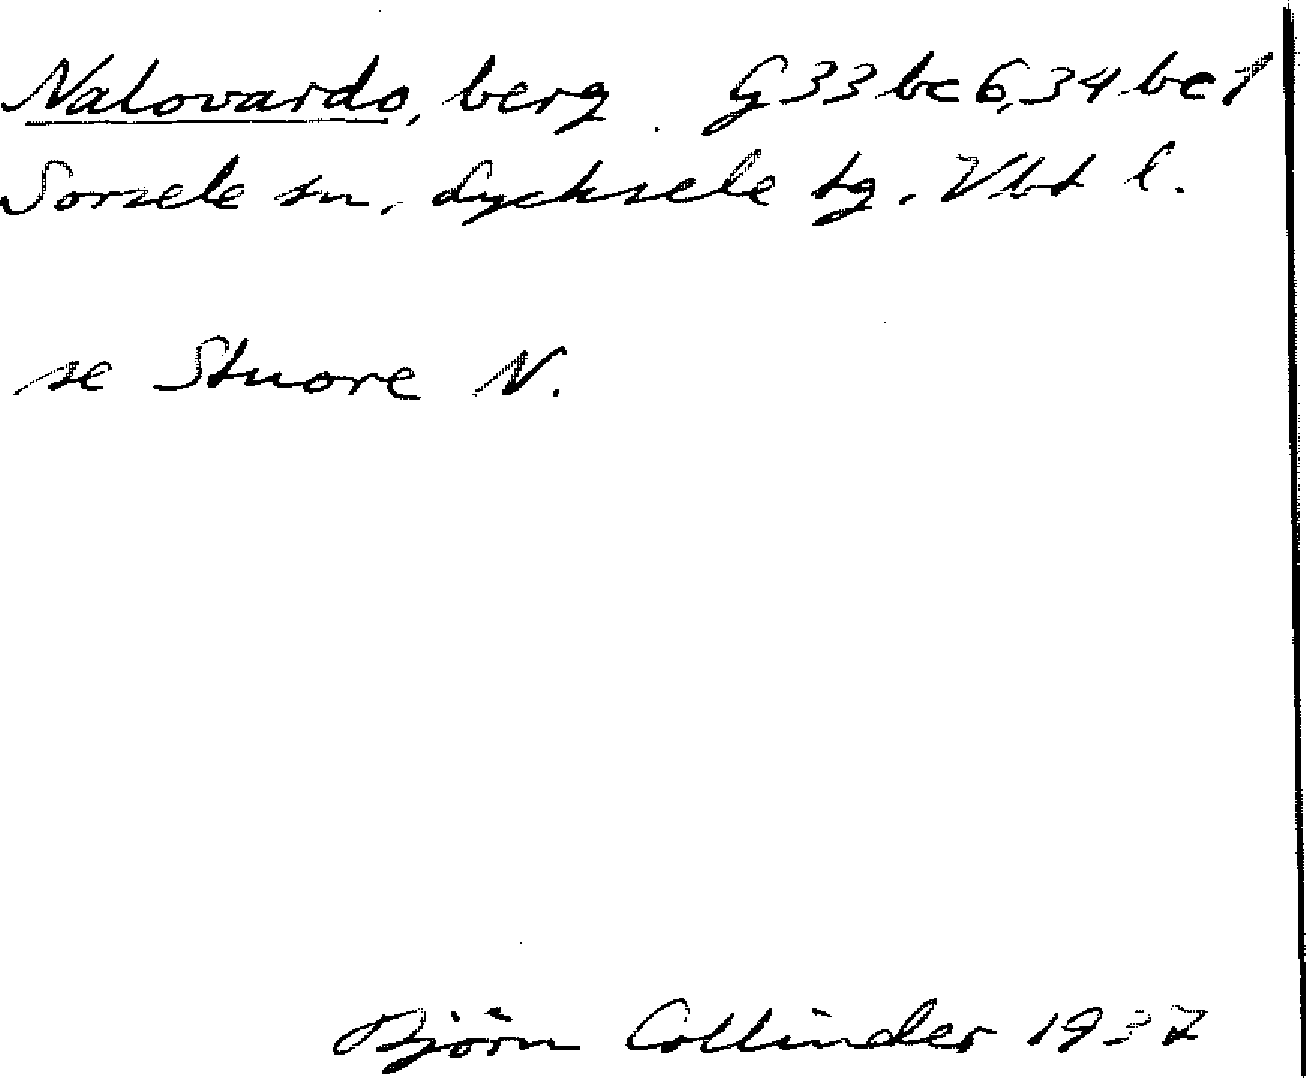 Nalovardo, berg G33bc6,34bc1
Sorsele sn, Lycksele tg. Vbt l.
se Stuore N.
Björn Collinder 1937